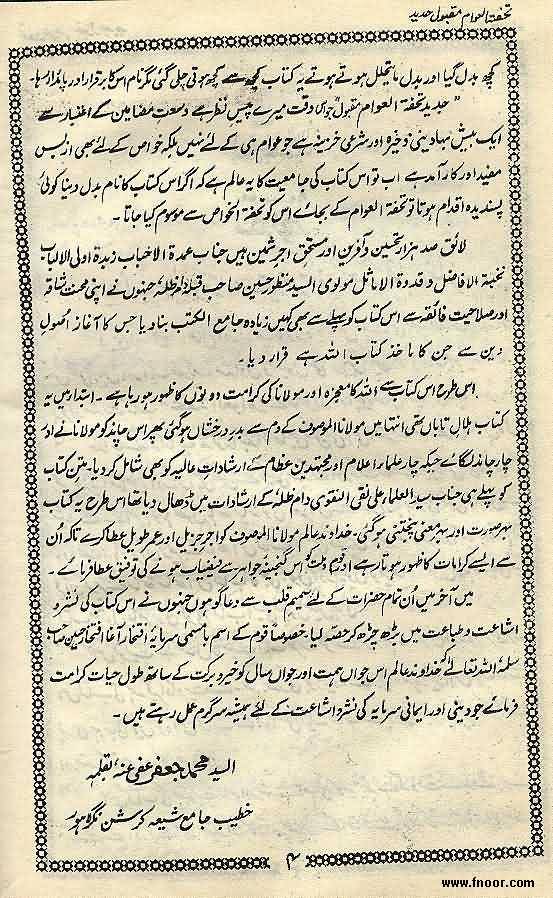 تحفۃ العوام مقبول جدید
کچھ بدل گیا اور بدل ما یتحلل ہوتے ہوتے یہ کتاب کچھ سے کچھ ہوتی چلی گئی مگر نام اس کا برقرار اور پائدار رہا۔
"جدید تحفۃ العوام مقبول" جو اس وقت میرے پیش نظر ہے وسعت مضامین کے اعتبار سے
ایک بیش بہا دینی ذخیرہ اور شرعی خزینہ ہے جو عوام ہی کے لئے نہیں بلکہ خواص کے لئے بھی از بس
مفید اور کار آمد ہے اب تو اس کتاب کی جامعیت کا یہ عالم ہے کہ اگر اس کتاب کا نام بدل دینا کوئی
پسندیدہ اقدام ہوتا تو تحفۃ العوام کے بجائے اس کو تحفۃ الخواص سے موسوم کیا جاتا۔
لائق صد ہزار تحسین و آفرین اور مستحق اجر ثمین ہیں جناب عمدۃ الاخیاب زبدۃ اولی الالباب
نخبۃ الافاضل و قدوۃ الاماثل مولوی السید منظور حسین صاحب قبلہ دام ظلہ، جنہوں نے اپنی محنت شاقہ
اور صلاحیت فائقہ سے اس کتاب کو پہلے سے بھی کہیں زیادہ جامع الکتب بنا دیا جس کا آغاز اصول
دین سے جن کا ماخذ کتاب اللہ ہے قرار دیا۔
اس طرح اس کتاب سے اللہ کا معجزہ اور مولانا کی کرامت دونوں کا ظہور ہو رہا ہے۔ ابتدا میں یہ
کتاب ہلال تاباں تھی انتہا میں مولانا الموصوف کے دم سے بدر درخشاں ہو گئی پھر اس چاند کو مولانا نے اور
چار چاند لگائے جبکہ چار علماء اعلام اور مجتہدین عظام کے ارشادات عالیہ کو بھی شامل کر دیا۔ متن کتاب
کو پہلے ہی جناب سید العلماء علی نقی النقوی دام ظلہ کے ارشادات میں ڈھال دیا تھا اس طرح یہ کتاب
بہر صورت اور بہر معنی پنجتنی ہو گئی۔ خداوند عالم مولانا الموصوف کو اجر جزیل اور عمر طویل عطا کرے تاکہ اُن
سے ایسے کرامات کا ظہور ہوتا رہے اور قوم و ملت کو اس گنجینۂ جواہر سے فیضیاب ہونے کی توفیق عطا فرمائے۔
میں آخر میں اُن تمام حضرات کے لئے صمیم قلب سے دعا گو ہوں جنہوں نے اس کتاب کی نشر و
اشاعت و طباعت میں بڑھ چڑھ کر حصہ لیا۔ خصوصاً قوم کے اسم با مسمیٰ سرمایۂ افتخار آغا افتخار حسین صاحب
سلمہ اللہ تعالیٰ کو خداوند عالم اس جواں ہمت اور جواں سال کو خیر و برکت کے ساتھ طول حیات کرامت
فرمائے جو دینی اور ایمانی سرمایہ کی نشر و اشاعت کے لئے ہمیشہ سرگرم عمل رہتے ہیں۔
السید محمد جعفر عفی عنہ، بقلمہ
خطیب جامع شیعہ کرشن نگر لاہور
۴
www.fnoor.com